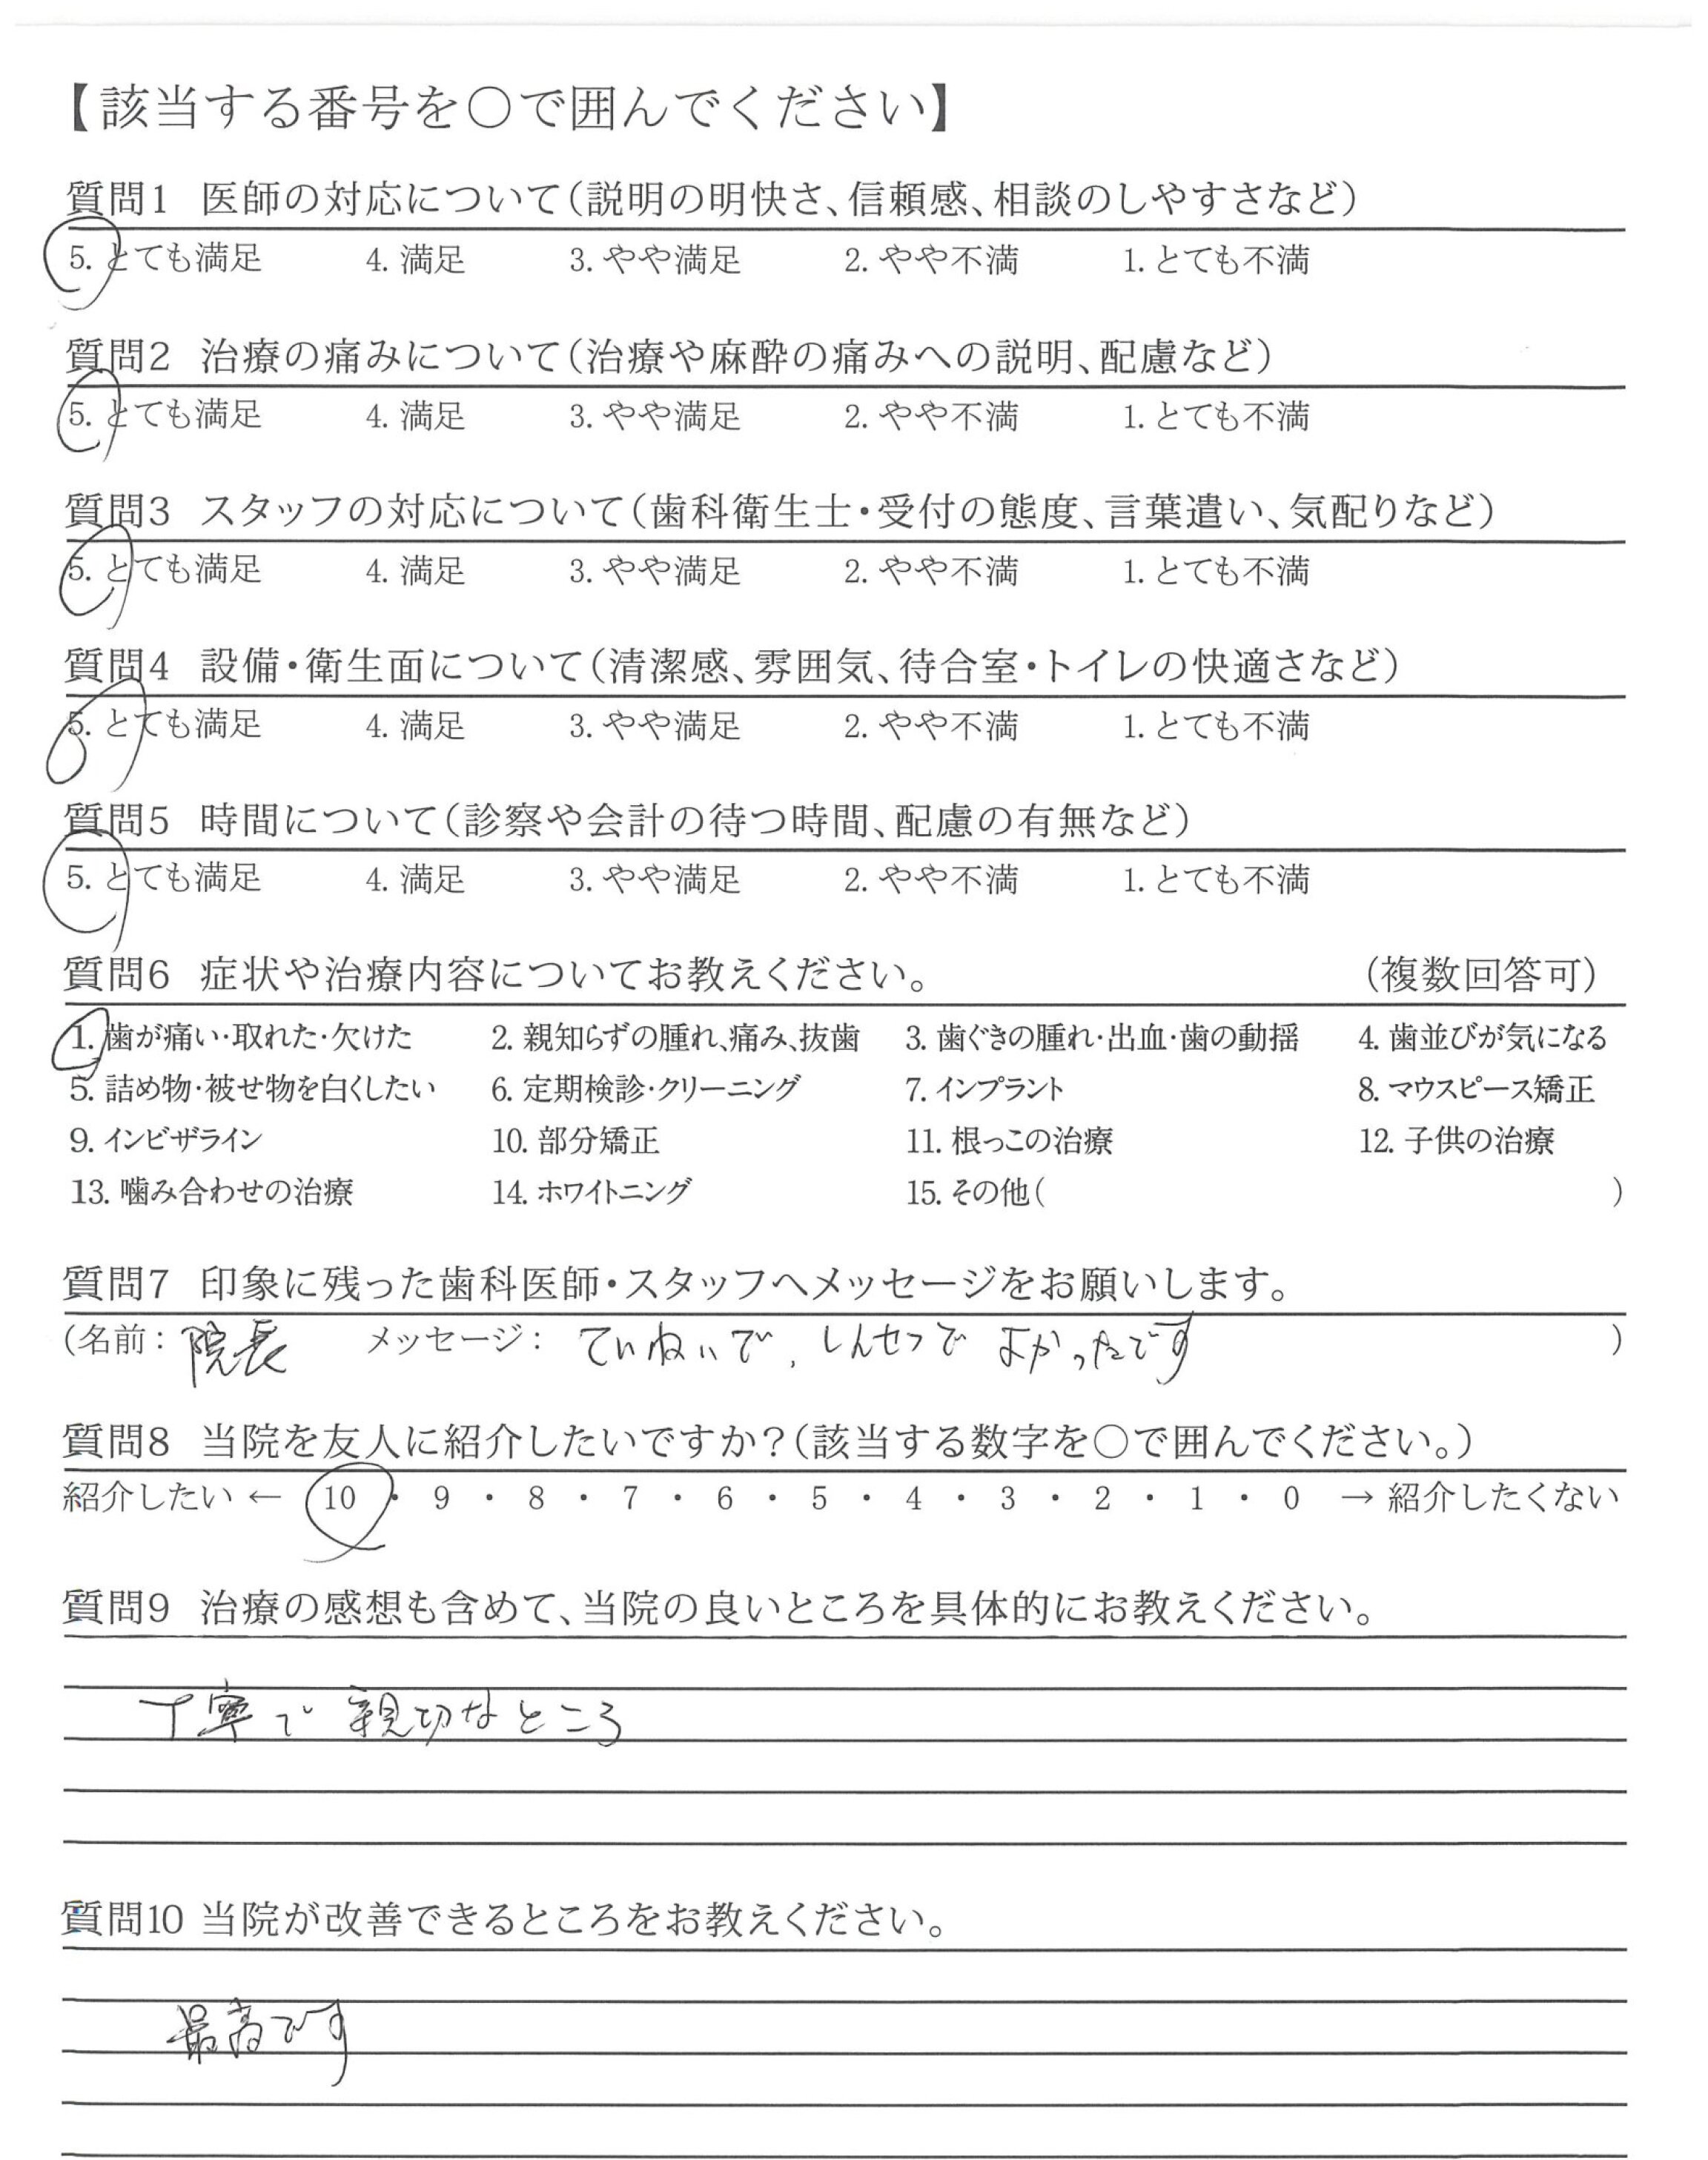 【該当する番号を〇で囲んでください】
質問1 医師の対応について(説明の明快さ、信頼感、相談のしやすさなど)
5. とても満足 4. 満足 3. やや満足 2. やや不満 1. とても不満
質問2 治療の痛みについて(治療や麻酔の痛みへの説明、配慮など)
5. とても満足 4. 満足 3. やや満足 2. やや不満 1. とても不満
質問3 スタッフの対応について(歯科衛生士・受付の態度、言葉遣い、気配りなど)
5. とても満足 4. 満足 3. やや満足 2. やや不満 1. とても不満
質問4 設備・衛生面について(清潔感、雰囲気、待合室・トイレの快適さなど)
5. とても満足 4. 満足 3. やや満足 2. やや不満 1. とても不満
質問5 時間について(診察や会計の待つ時間、配慮の有無など)
5. とても満足 4. 満足 3. やや満足 2. やや不満 1. とても不満
質問6 症状や治療内容についてお教えください。 (複数回答可)
1. 歯が痛い・取れた・欠けた 2. 親知らずの腫れ、痛み、抜歯 3. 歯ぐきの腫れ・出血・歯の動揺 4. 歯並びが気になる
5. 詰め物・被せ物を白くしたい 6. 定期検診・クリーニング 7. インプラント 8. マウスピース矯正
9. インビザライン 10. 部分矯正 11. 根っこの治療 12. 子供の治療
13. 噛み合わせの治療 14. ホワイトニング 15. その他( )
質問7 印象に残った歯科医師・スタッフへメッセージをお願いします。
(名前: 院長 メッセージ: ていねいで、しんせつで よかったです )
質問8 当院を友人に紹介したいですか?(該当する数字を〇で囲んでください。)
紹介したい ← 10 ・ 9 ・ 8 ・ 7 ・ 6 ・ 5 ・ 4 ・ 3 ・ 2 ・ 1 ・ 0 → 紹介したくない
質問9 治療の感想も含めて、当院の良いところを具体的にお教えください。
丁寧で 親切なところ
質問10 当院が改善できるところをお教えください。
最高です